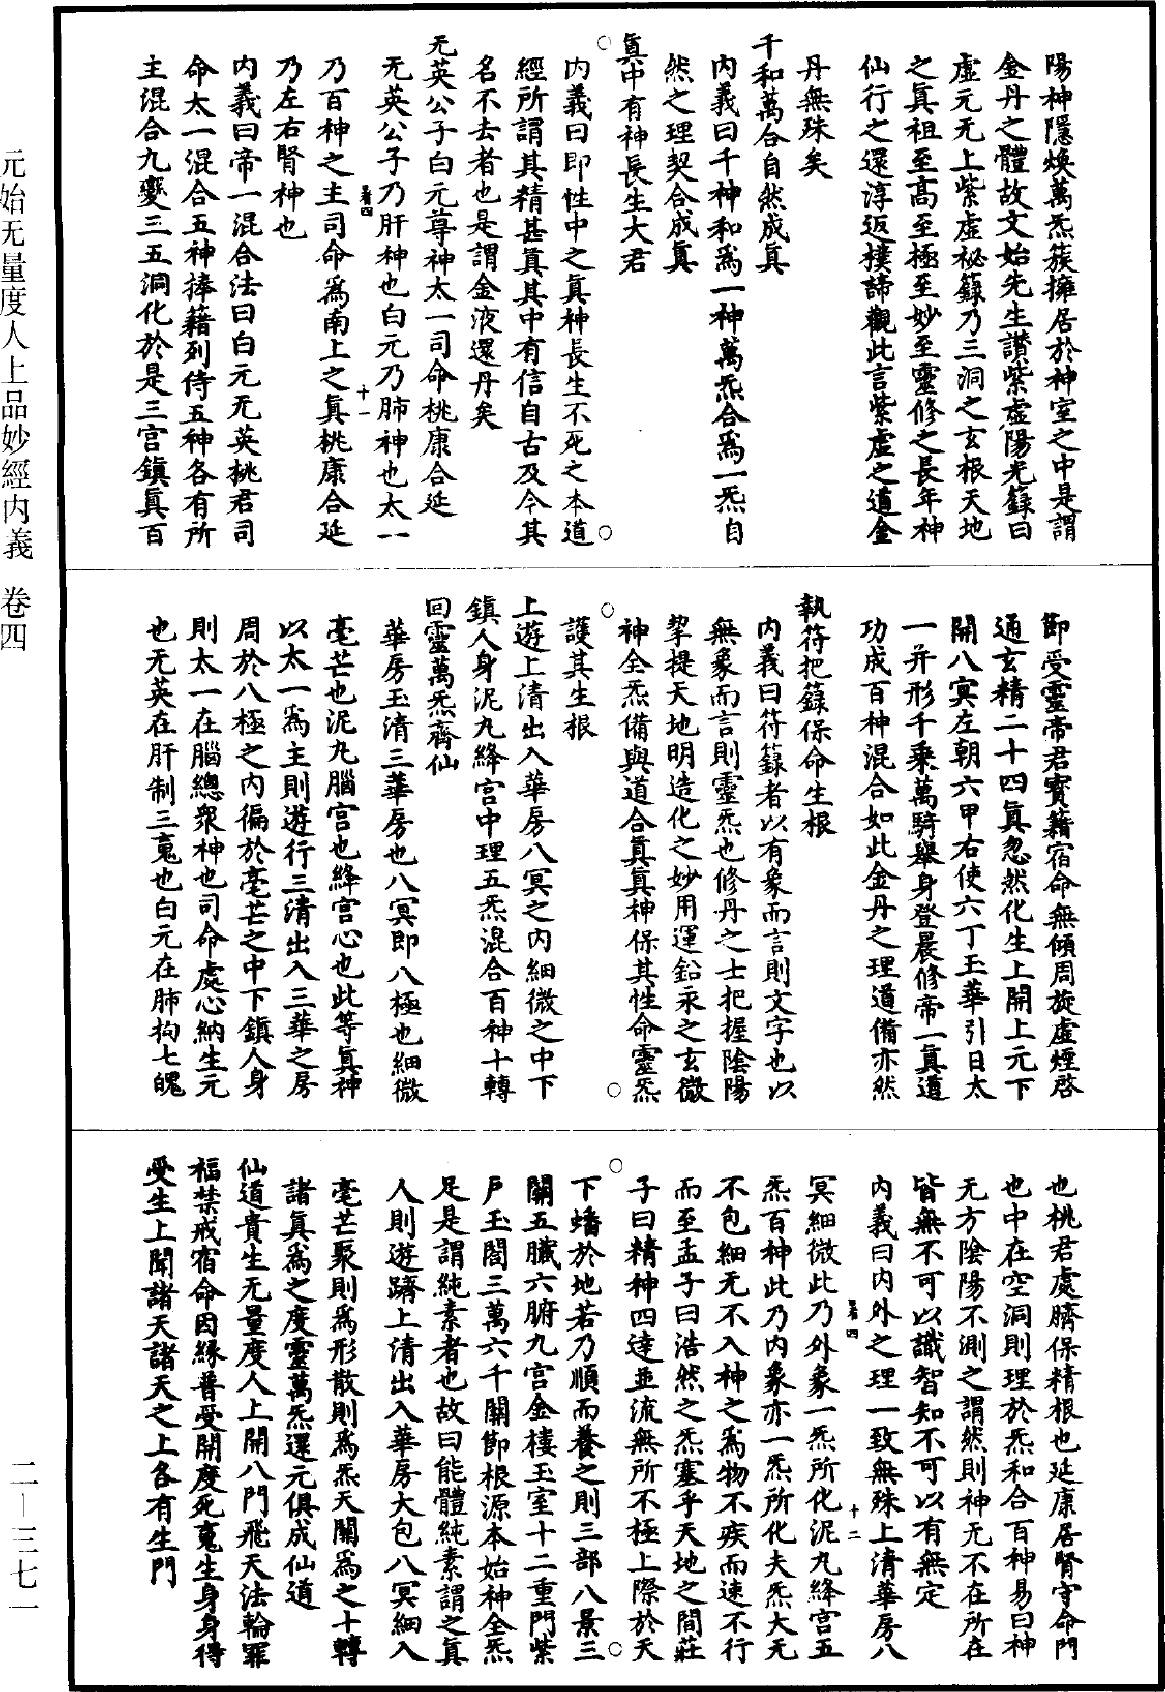 陽神隱煥萬炁簇擁居於神室之中是謂
金丹之體故文始先生讚紫虛陽光籙曰
虛元无上紫虛祕籙乃三洞之玄根天地
之真祖至高至極至妙至靈修之長年神
仙行之還淳返樸諦觀此言紫虛之道金
丹無殊矣
千和萬合自然成真
內義曰千神和爲一神萬炁合爲一炁自
然之理契合成真
真中有神長生大君
內義曰即性中之真神長生不死之本道
經所謂其精甚真其中有信自古及今其
名不去者也是謂金液還丹矣
无英公子白元尊神太一司命桃康合延
无英公子乃肝神也白元乃肺神也太一
乃百神之主司命爲南上之真桃康合延
乃左右腎神也
內義曰帝一混合法曰白元无英桃君司
命太一混合五神捧籍列侍五神各有所
主混合九變三五洞化於是三宮鎮真百
節受靈帝君寶籍宿命無傾周旋虛煙啓
通玄精二十四真忽然化生上開上元下
開八冥左朝六甲右使六丁玉華引日太
一并形千乘萬騎舉身登晨修帝一真道
功成百神混合如此金丹之理道備亦然
執符把籙保命生根
內義曰符籙者以有象而言則文字也以
無象而言則靈炁也修丹之士把握陰陽
挈提天地明造化之妙用運鉛汞之玄微
神全炁備與道合真真神保其性命靈炁
護其生根
上遊上清出入華房八冥之內細微之中下
鎮人身泥丸絳宮中理五炁混合百神十轉
回靈萬炁齊仙
華房玉清三華房也八冥即八極也細微
毫芒也泥丸腦宮也絳宮心也此等真神
以太一爲主則遊行三清出入三華之房
周於八極之內徧於毫芒之中下鎮人身
則太一在腦總衆神也司命處心納生元
也无英在肝制三䰟也白元在肺拘七魄
也桃君處臍保精根也延康居腎守命門
也中在空洞則理於炁和合百神易曰神
无方陰陽不測之謂然則神无不在所在
皆無不可以識智知不可以有無定
內義曰內外之理一致無殊上清華房八
冥細微此乃外象一炁所化泥丸絳宮五
炁百神此乃內象亦一炁所化夫炁大无
不包細无不入神之爲物不疾而速不行
而至孟子曰浩然之炁塞乎天地之間莊
子曰精神四達並流無所不極上際於天
下蟠於地若乃順而養之則三部八景三
關五臟六腑九宮金樓玉室十二重門紫
戶玉閤三萬六千關節根源本始神全炁
足是謂純素者也故曰能體純素謂之真
人則遊躋上清出入華房大包八冥細入
毫芒聚則爲形散則爲炁天關爲之十轉
諸真爲之度靈萬炁還元俱成仙道
仙道貴生无量度人上開八門飛天法輪罪
福禁戒宿命因緣普受開度死䰟生身身得
受生上聞諸天諸天之上各有生門
元始无量度人上品妙經內義　卷四
二—三七一